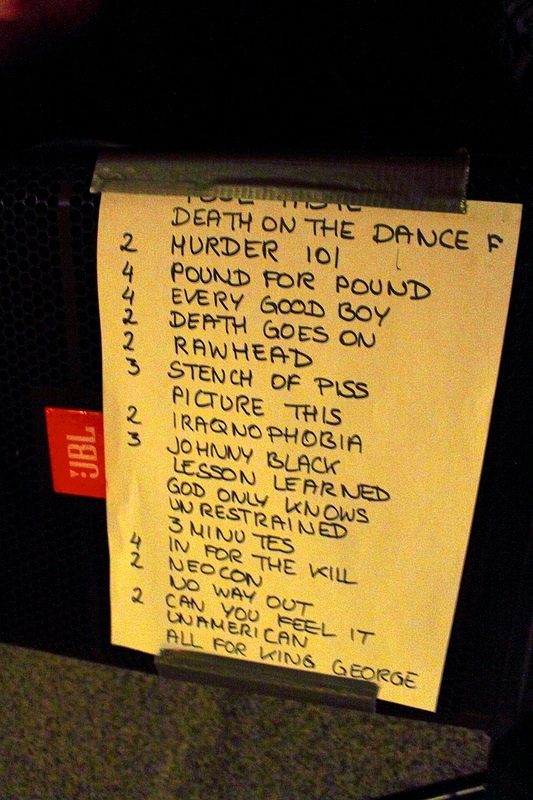 DEATH ON THE DANCE F
2 MURDER 101
4 POUND FOR POUND
4 EVERY GOOD BOY
2 DEATH GOES ON
2 RAWHEAD
3 STENCH OF PISS
PICTURE THIS
2 IRAQNOPHOBIA
3 JOHNNY BLACK
LESSON LEARNED
GOD ONLY KNOWS
UNRESTRAINED
3 MINUTES
4 IN FOR THE KILL
2 NEOCON
NO WAY OUT
2 CAN YOU FEEL IT
UNAMERICAN
ALL FOR KING GEORGE
JBL